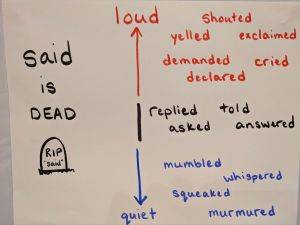 said
is
DEAD
RIP
"said"
loud
shouted
yelled exclaimed
demanded cried
declared
replied told
asked answered
mumbled
whispered
squeaked
quiet murmured